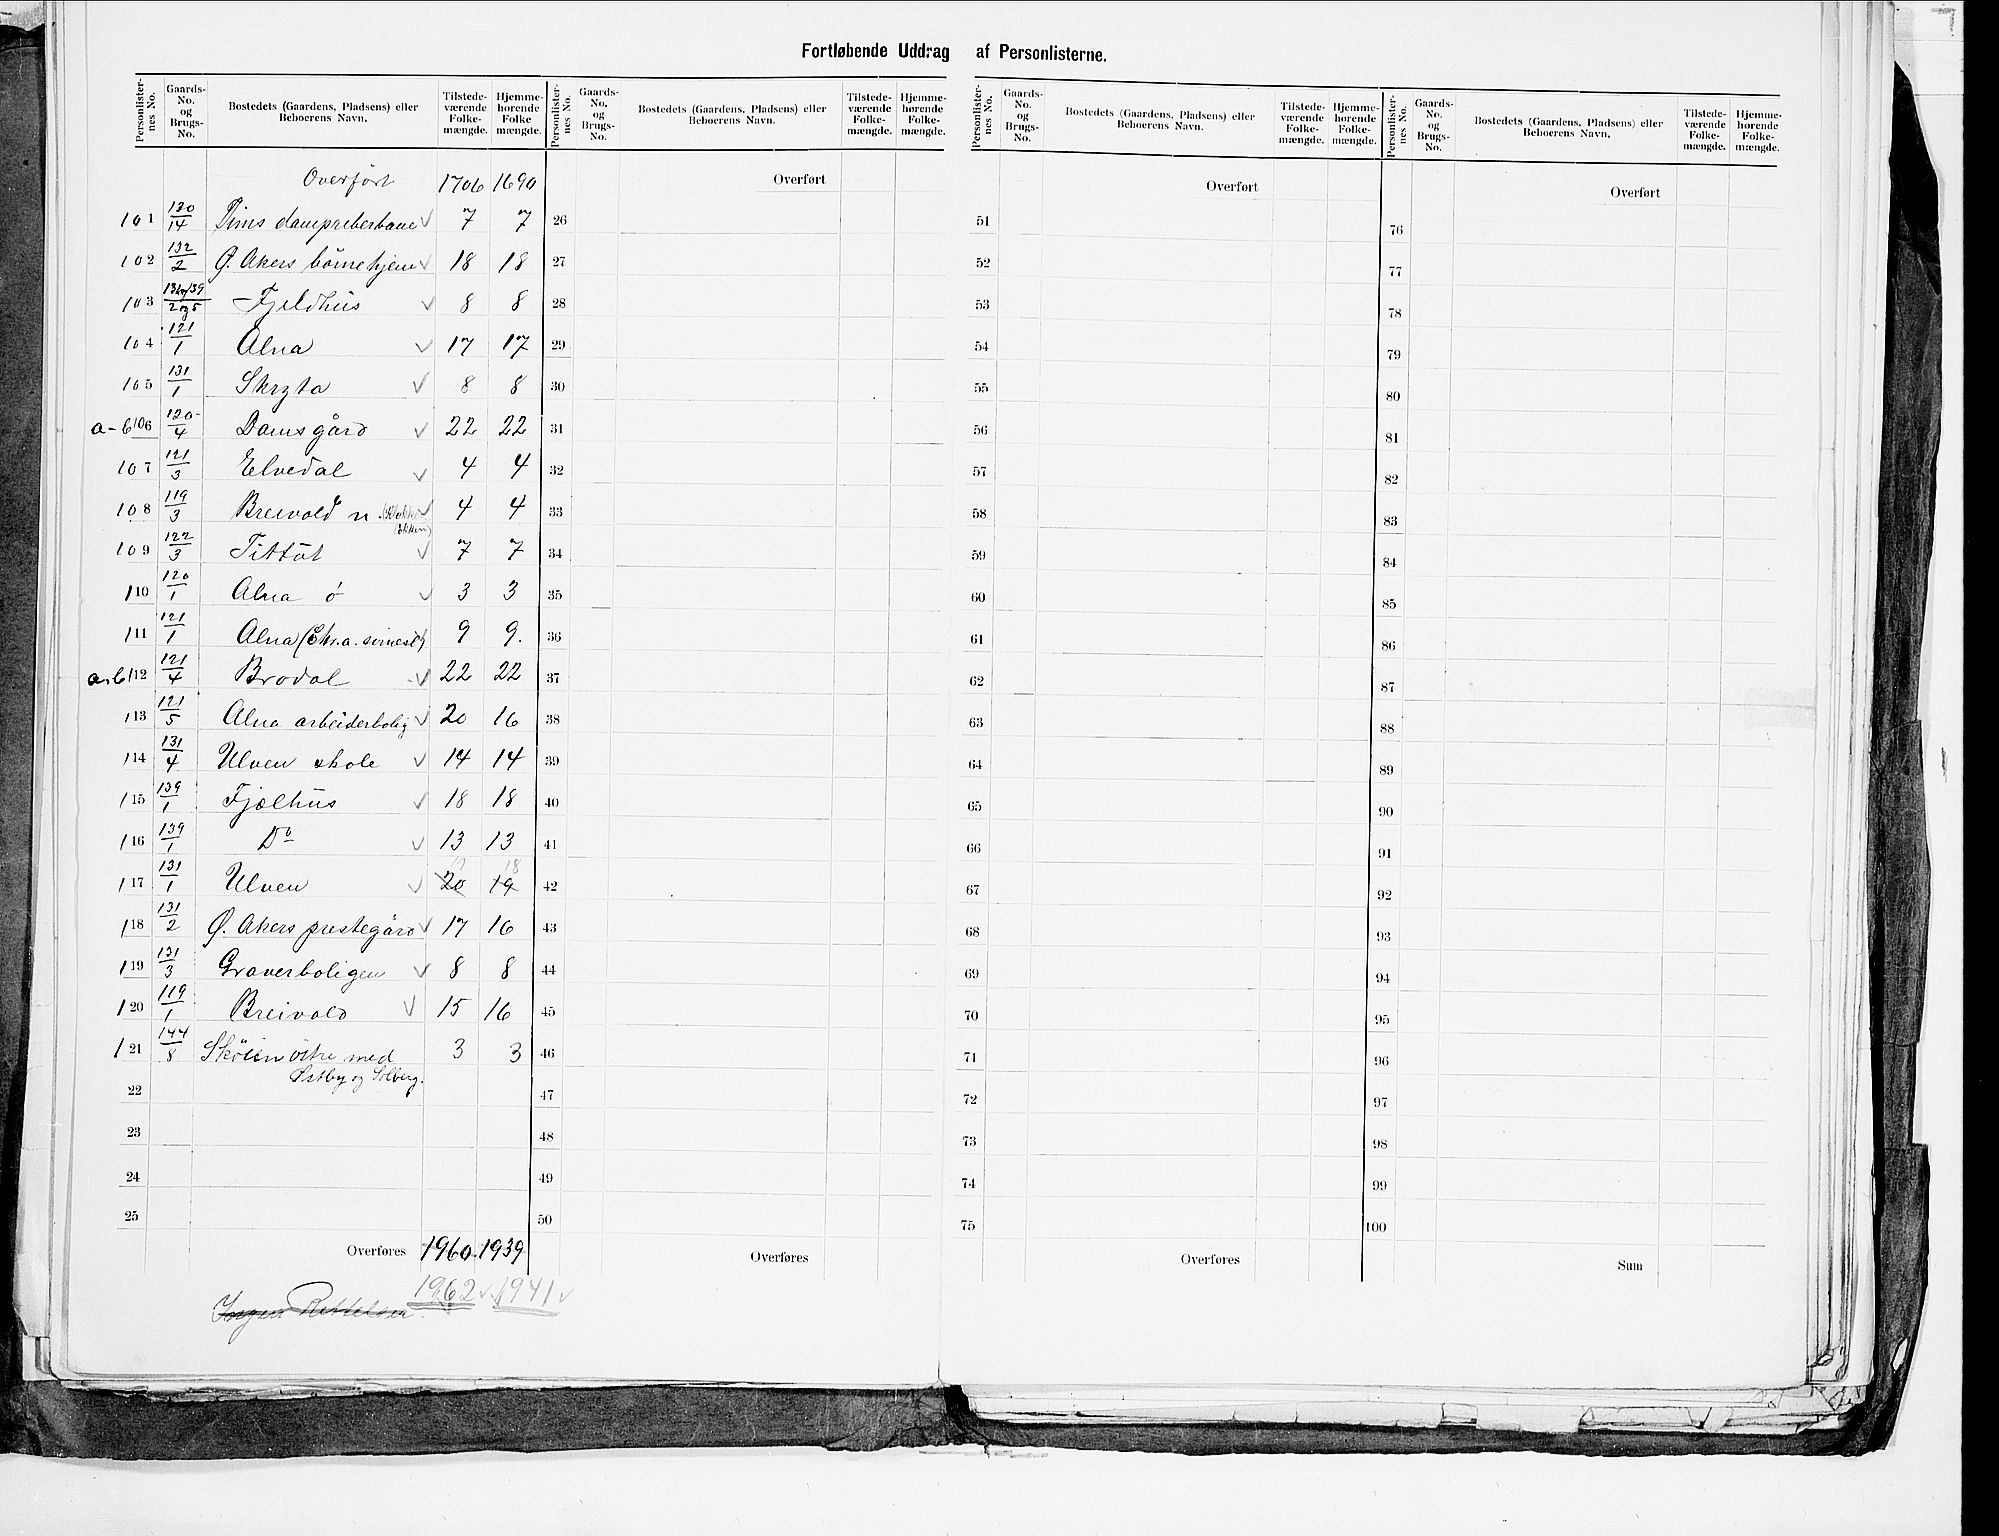 Fortløbende Uddrag af Personlisterne.
Personlister-nes No. Gaards-No. og Brugs-No. Bostedets (Gaardens, Pladsens) eller Beboerens Navn. Tilstede-værende Folke-mængde. Hjemme-hørende Folke mængde.
Personlister-nes No. Gaards-No. og Brugs-No. Bostedets (Gaardens, Pladsens) eller Beboerens Navn. Tilstede-værende Folke-mængde. Hjemme-hørende Folke-mængde.
Personlister-nes No. Gaards-No. og Brugs-No. Bostedets (Gaardens, Pladsens) eller Beboerens Navn. Tilstede-værende Folke-mængde. Hjemme-hørende Folke-mængde.
Personlister-nes No. Gaards-No. og Brugs-No. Bostedets (Gaardens, Pladsens) eller Beboerens Navn. Tilstede-værende Folke-mængde. Hjemme-hørende Folke-mængde.
Overført 1706 1690
101 120/14 7 7
102 132/2 Ø. Akers börnehjem 18 18
103 2og5 Fjeldhus 8 8
104 121/1 Alna 17 17
105 131/1 Skrata 8 8
a-b 106 120/4 Damsgård 22 22
107 121/3 Elvedal 4 4
108 119/3 Breivold n. 4 4
109 122/3 Tittut 7 7
110 120/1 Alna ö 3 3
111 121/1 Alna (Chr.a. 9 9.
a-b 112 121/4 Brodal 22 22
113 121/5 Alna arbeiderbolig 20 16
114 131/4 Ulven skole 14 14
115 139/1 Fjælhus 18 18
116 139/1 Do 13 13
117 131/1 Ulven 20 19 18
118 131/2 Ø. Akers prestegård 17 16
119 131/3 Graverboligen 8 8
120 119/1 Breivold 15 16
121 144/8 Skøien östre med 3 3
Østby og Solberg.
22
23
24
25
Overføres 1960 1939
1962 1941
Overført
26
27
28
29
30
31
32
33
34
35
36
37
38
39
40
41
42
43
44
45
46
47
48
49
50
Overføres
Overført
51
52
53
54
55
56
57
58
59
60
61
62
63
64
65
66
67
68
69
70
71
72
73
74
75
Overføres
Overført
76
77
78
79
80
81
82
83
84
85
86
87
88
89
90
91
92
93
94
95
96
97
98
99
100
Sum